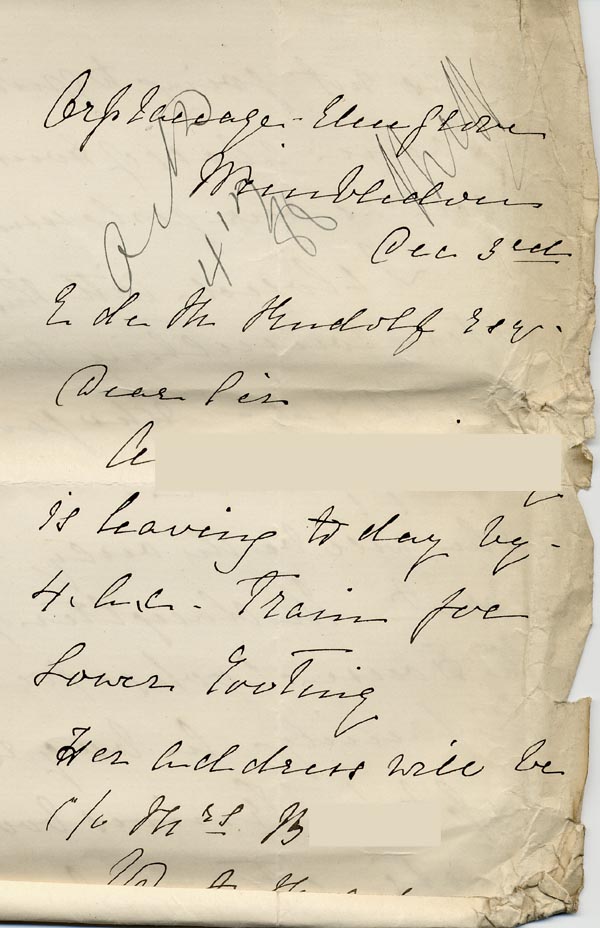 Orphanage - Elm Grove
Wimbledon
4.12.88
Dec 3rd
E de M Rudolf Esq.
Dear Sir
A
is leaving to day by
Train for
Lower Tooting
Her address will be
C/o Mrs B